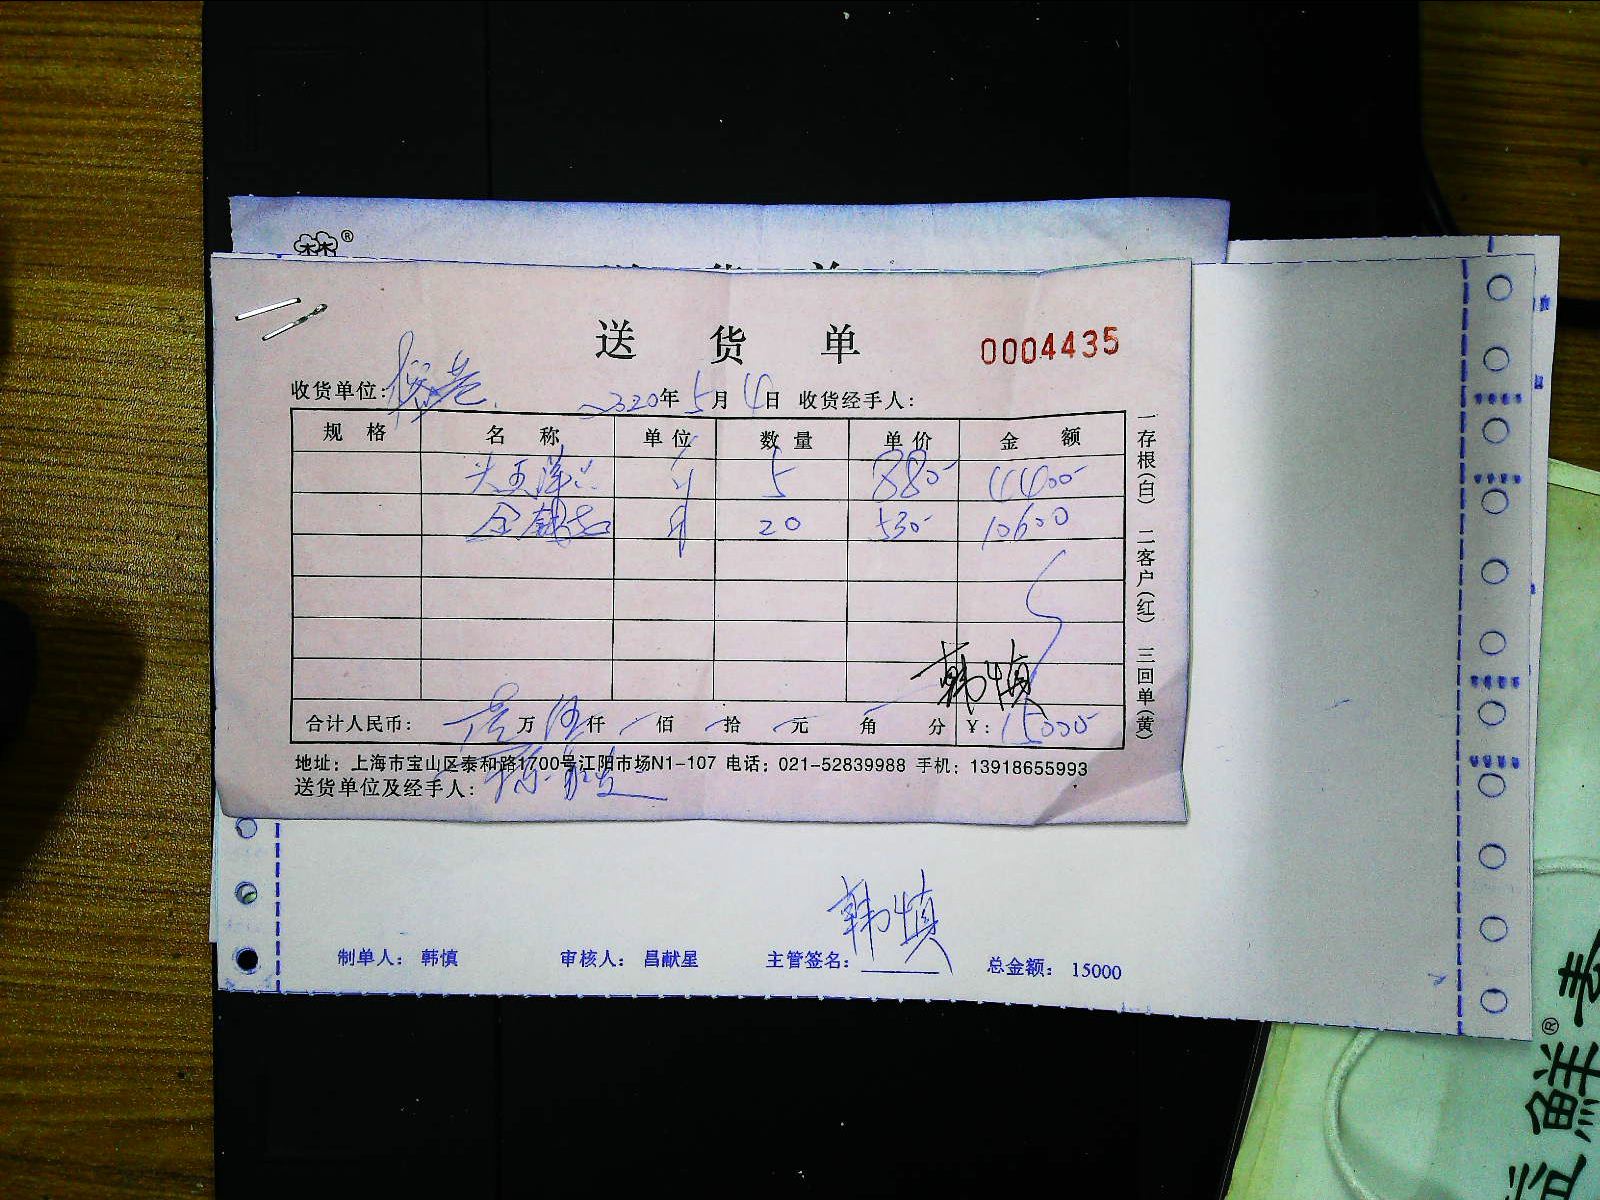 ®
送 货 单
0004435
收货单位: 2020年5月4日 收货经手人:
规 格 名 称 单 位 数 量 单 价 金 额
斤 5 880- 4400-
斤 20 530- 10600
韩慎
合计人民币: 壹万伍仟 佰 拾 元 角 分 ¥: 15000-
地址: 上海市宝山区泰和路1700号江阳市场N1-107 电话: 021-52839988 手机: 13918655993
送货单位及经手人:
一存根(白) 二客户(红) 三回单(黄)
韩慎
制单人: 韩慎 审核人: 昌献星 主管签名: 总金额: 15000
鲜
®